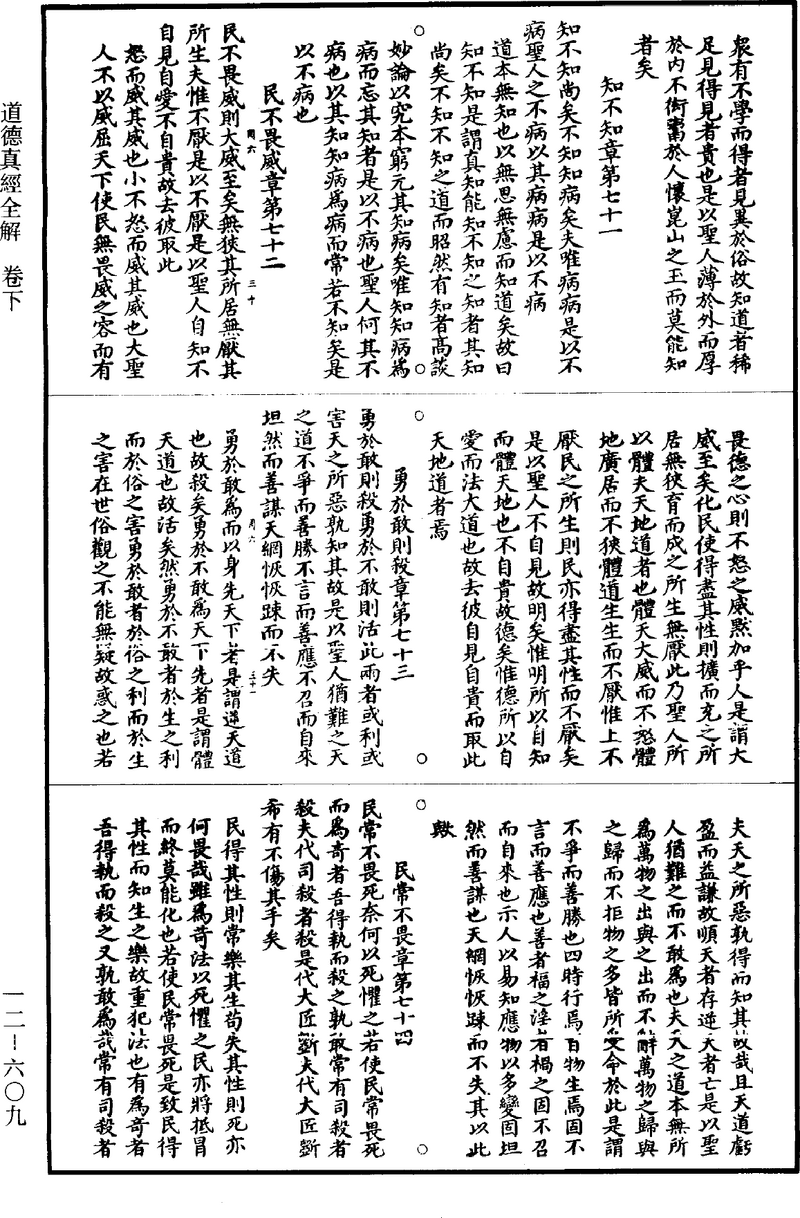 道德真經全解 卷下
一二-六〇九
衆有不學而得者見異於俗故知道者稀
足見得見者貴也是以聖人薄於外而厚
於内不衒鬻於人懷崑山之玉而莫能知
者矣
知不知章第七十一
知不知尚矣不知知病矣夫唯病病是以不
病聖人之不病以其病病是以不病
道本無知也以無思無慮而知道矣故曰
知不知是謂真知能知不知之知者其知
尚矣不知不知之道而昭然有知者高談
妙論以究本窮元其知病矣唯知知病爲
病而忘其知者是以不病也聖人何其不
病也以其知知病爲病而常若不知矣是
以不病也
民不畏威章第七十二
周六
三十
民不畏威則大威至矣無狹其所居無厭其
所生夫惟不厭是以不厭是以聖人自知不
自見自愛不自貴故去彼取此
怒而威其威也小不怒而威其威也大聖
人不以威屈天下使民無畏威之容而有
畏德之心則不怒之威黙加乎人是謂大
威至矣化民使得盡其性則擴而充之所
居無狹育而成之所生無厭此乃聖人所
以體夫天地道者也體天大威而不怒體
地廣居而不狹體道生生而不厭惟上不
厭民之所生則民亦得盡其性而不厭矣
是以聖人不自見故明矣惟明所以自知
而體天地也不自貴故德矣惟德所以自
愛而法大道也故去彼自見自貴而取此
天地道者焉
勇於敢則殺章第七十三
勇於敢則殺勇於不敢則活此兩者或利或
害天之所惡孰知其故是以聖人猶難之天
之道不爭而善勝不言而善應不召而自來
坦然而善謀天網恢恢踈而不失
周六
三十一
勇於敢爲而以身先天下者是謂逆天道
也故殺矣勇於不敢爲天下先者是謂體
天道也故活矣然勇於不敢者於生之利
而於俗之害勇於敢者於俗之利而於生
之害在世俗觀之不能無疑故惑之也若
夫天之所惡孰得而知其故哉且天道虧
盈而益謙故順天者存逆天者亡是以聖
人猶難之而不敢爲也夫天之道本無所
爲萬物之出與之出而不辭萬物之歸與
之歸而不拒物之多皆所受命於此是謂
不爭而善勝也四時行焉百物生焉固不
言而善應也善者福之淫者禍之固不召
而自來也示人以易知應物以多變固坦
然而善謀也天網恢恢踈而不失其以此
歟
民常不畏章第七十四
民常不畏死奈何以死懼之若使民常畏死
而爲奇者吾得執而殺之孰敢常有司殺者
殺夫代司殺者殺是代大匠斲夫代大匠斲
希有不傷其手矣
民得其性則常樂其生苟失其性則死亦
何畏哉雖爲苛法以死懼之民亦將抵冒
而終莫能化也若使民常畏死是致民得
其性而知生之樂故重犯法也有爲奇者
吾得執而殺之又孰敢爲哉常有司殺者